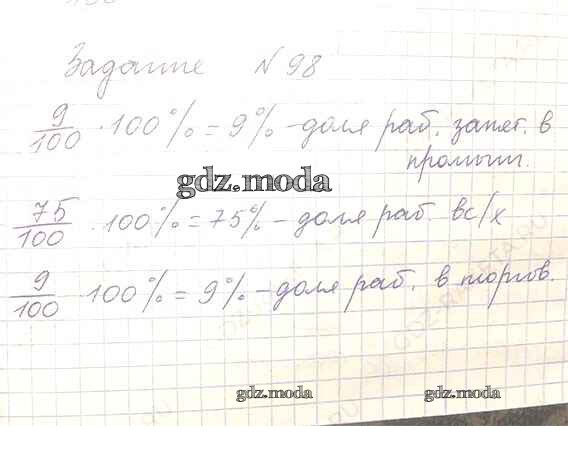 Задание № 98
9/100 · 100% = 9% - доля раб. занят. в
промышл.
gdz.moda
75/100 · 100% = 75% - доля раб. в с/х
9/100 · 100% = 9% - доля раб. в торгов.
gdz.moda gdz.moda